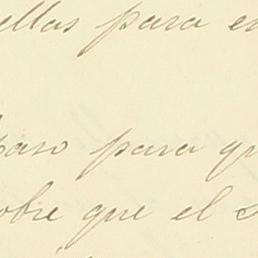 ellas para en
paso para qu
obre que el s